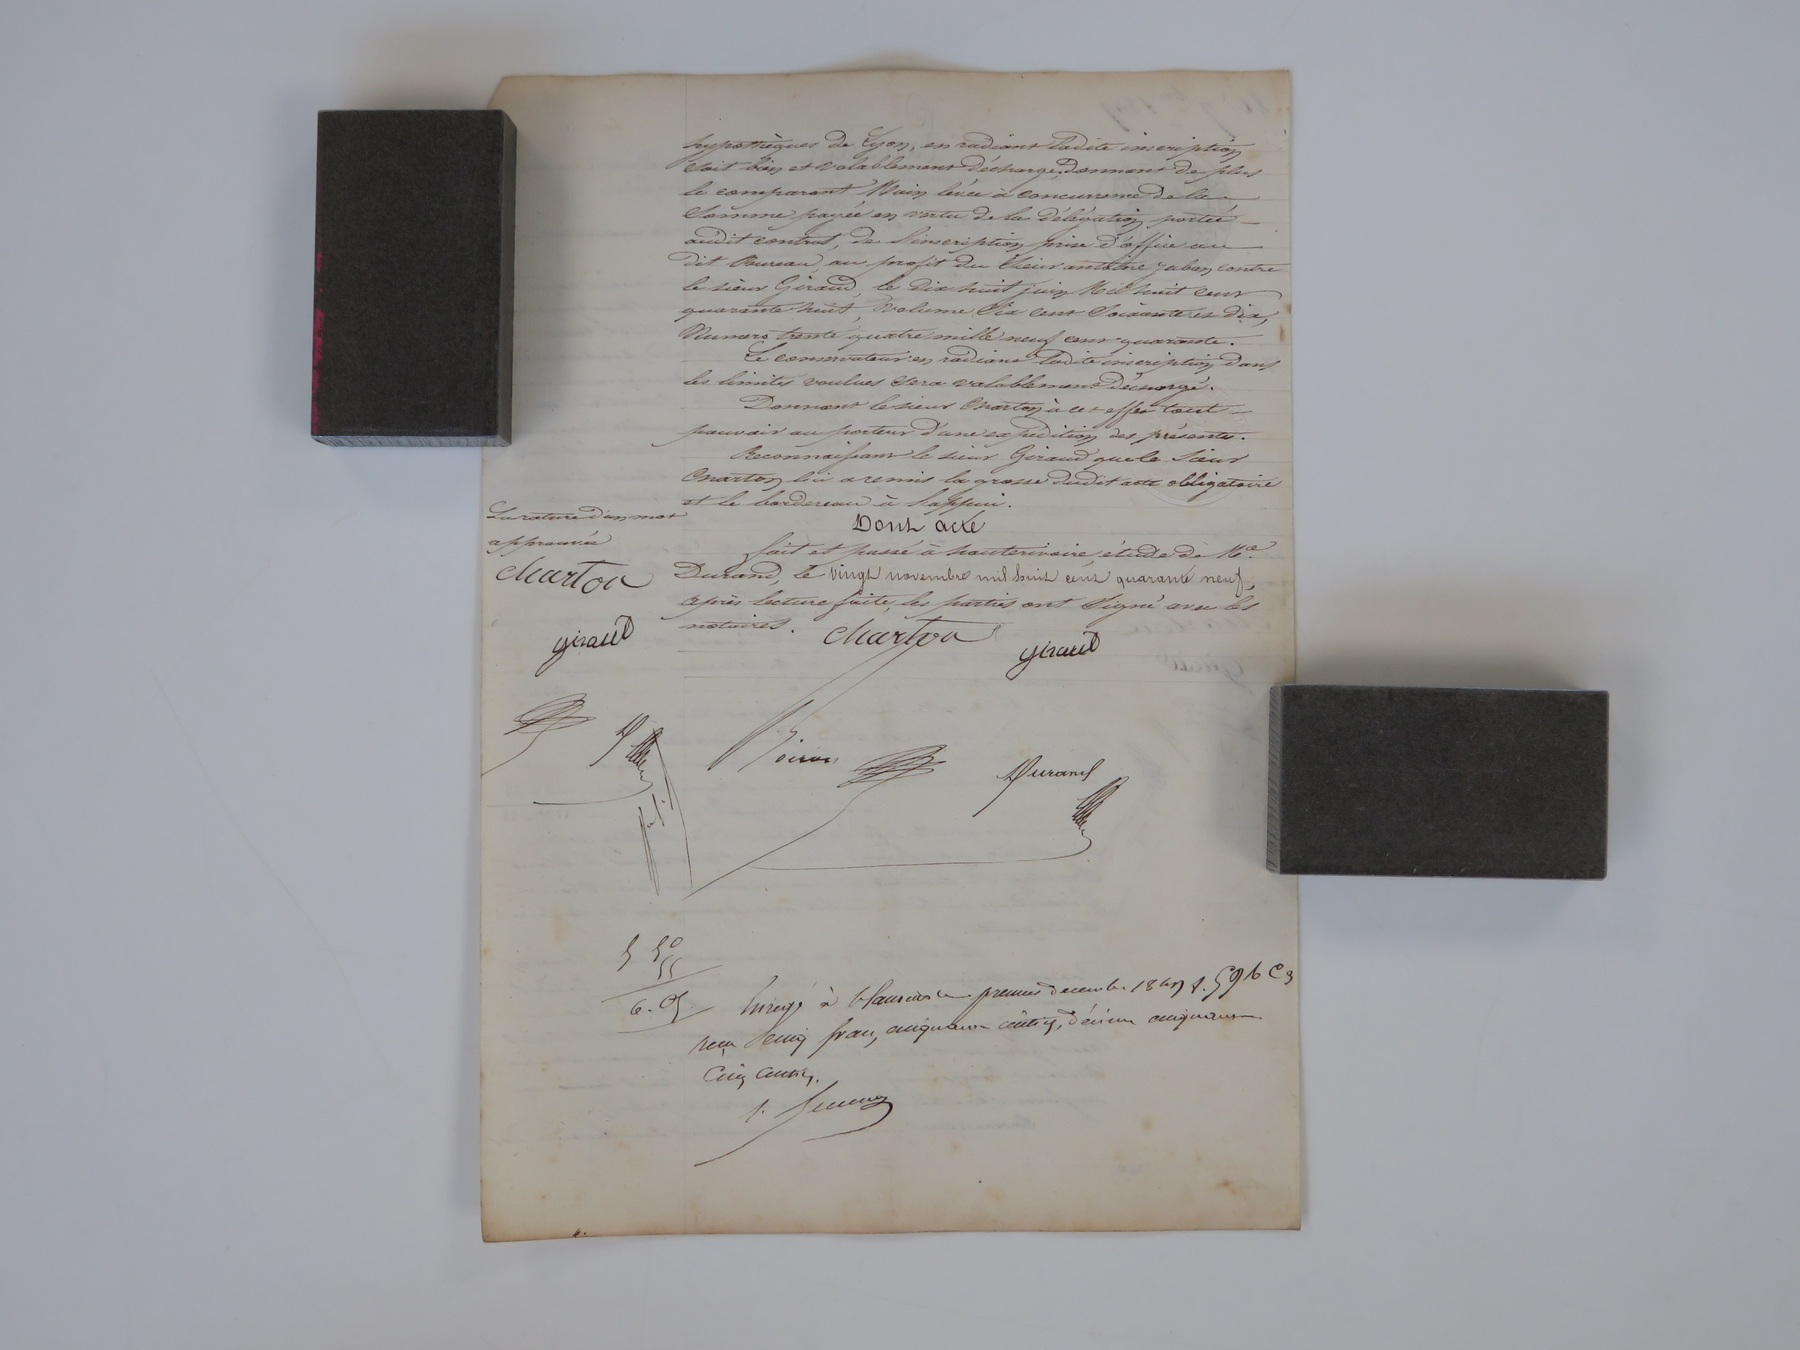 hypothèques de Lyon, en radiant ladite inscription
soit bien et valablement déchargé, Donnant de plus
le comparant Main levée à concurrence de la
somme payée en vertu de la délégation portée
audit contrat, de l'inscription prise d'office au
dit Bureau, au profit du sieur antoine Juban contre
le sieur Giraud, le dix huit juin Mil huit cent
quarante huit, volume Six cent Soixante et dix,
Numero trente quatre mille neuf cent quarante.
Le conservateur en radiant ladite inscription dans
les limites voulues sera valablement déchargé.
Donnant le sieur Charton à cet effet tout
pouvoir au porteur d'une expédition des présentes.
Reconnaissant le sieur Giraud que le Sieur
Charton lui a remis la grosse dudit acte obligatoire
et le bordereau à l'appui.
La rature d'un mot
approuvée
Charton
giraud
Dont acte
fait et passé à hauterivoire, étude de Me
Durand, le vingt novembre mil huit cent quarante neuf,
après lecture faite, les parties ont Signé avec les
notaires.
Charton
giraud
Durand
5 50
55
6.05
Enregé à premier decembre 1849 f. 59 v C 3
reçu cinq francs cinquante centimes, décime cinquante
cinq centimes.